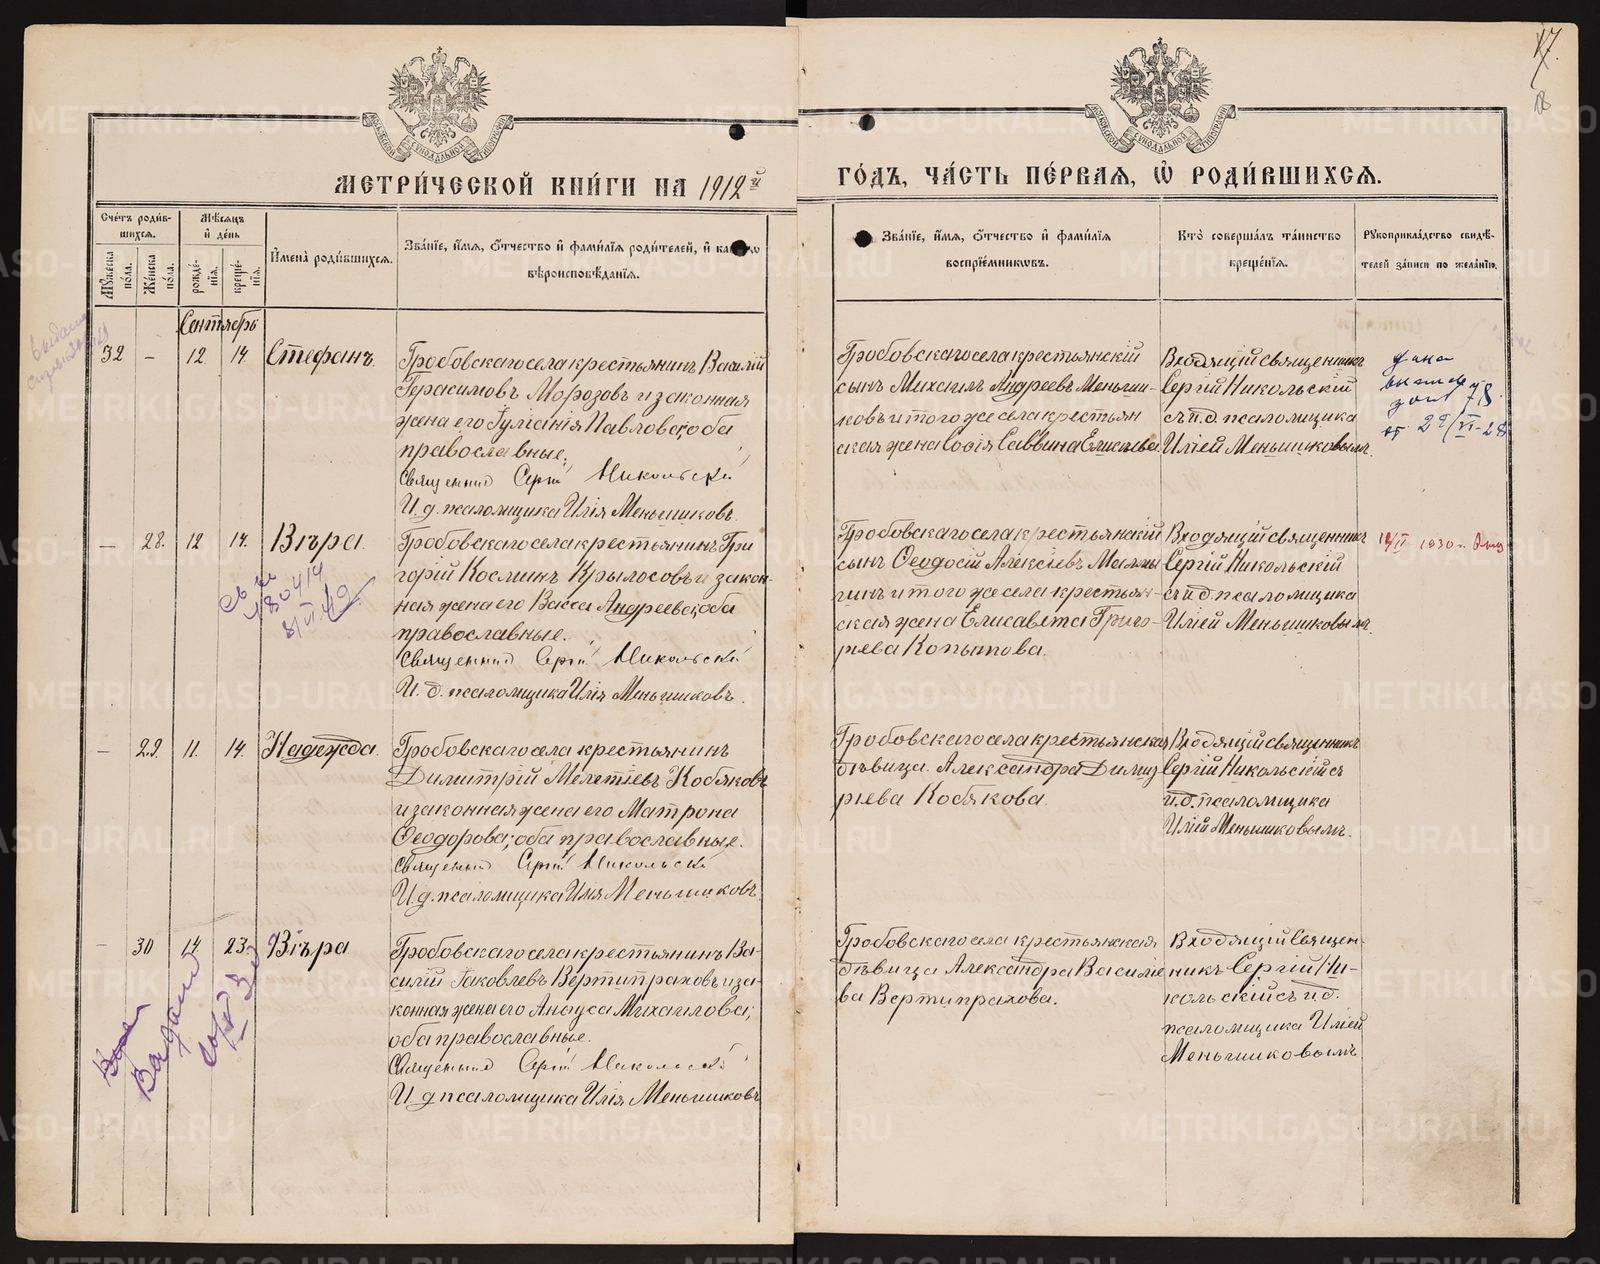 17.
18
МЕТРИ́ЧЕСКОЙ КНИ́ГИ НА 1912й
ГО́ДЪ, ЧА́СТЬ ПЕ́РВАЯ, Ѡ҆ РОДИ́ВШИХСЯ.
Сче́тъ роди́в-
шихся.
Му́жеска
по́ла.
Же́нска
по́ла.
Мѣ́сяцъ
и҆ де́нь
рожде́-
нїя.
креще́-
нїя.
И҆мена̀ роди́вшихся.
Зва́нїе, и҆́мя, ѻ҆́тчество и҆ фами́лїя роди́телей, и҆
вѣроисповѣ́данїя.
Зва́нїе, и҆́мя, ѻ҆́тчество и҆ фами́лїя
воспрїе́мниковъ.
Кто̀ соверша́лъ та́инство
креще́нїя.
Рꙋкоприкла́дство свидѣ́-
телей за́писи по жела́нїю.
Сентябрь
32 – 12 14 Стефанъ.
Гробовскаго села крестьянинъ Василій
Герасимовъ Морозовъ и законная
жена его Іуліанія Павлова; оба
православные.
Священник Сергій Никольскій
И. д. псаломщика Илія Меньшиковъ.
Гробовскаго села крестьянскій
сынъ Михаилъ Андреевъ Меньши-
ковъ и того же села крестьян
ская жена Софія Саввина
Входящій священникъ
Сергій Никольскій
съ и. д. псаломщика
Иліей Меньшиковымъ.
78
– 28. 12 14. Вѣра.
Гробовскаго села крестьянинъ Гри
горій Косминъ Крылосовъ и закон-
ная жена его Васса Андреева; оба
православные.
Священник Сергій Никольскій
И. д. псаломщика Илія Меньшиковъ.
Гробовскаго села крестьянскій
сынъ Ѳеодосій Алексіевъ
гинъ и того же села крестьян-
ская жена Елисавета Григо-
рьева Копытова.
Входящій священникъ
Сергій Никольскій
съ и д псаломщика
Иліей Меньшиковымъ.
1930 г.
– 29. 11. 14. Надежда.
Гробовскаго села крестьянинъ
Димитрій Мелетіевъ Кобяковъ
и законная жена его Матрона
Ѳеодорова; оба православные.
Священник Сергій Никольскій
И. д. псаломщика Илія Меньшиковъ.
Гробовскаго села крестьянская
дѣвица Александра Димит
рьева Кобякова.
Входящій священникъ
Сергій Никольскій съ
и. д. псаломщика
Иліей Меньшиковымъ.
– 30 14. 23. Вѣра
Гробовскаго села крестьянинъ Ва-
силій Іаковлевъ Вертипраховъ и за-
конная жена его Анѳуса Михаилова;
оба православные.
Священник Сергій Никольскій
И. д псаломщика Илія Меньшиковъ
Гробовскаго села крестьянская
дѣвица Александра Василье
ва Вертипрахова.
Входящій Священ-
никъ Сергій Ни-
кольскій съ и д.
псаломщика Иліей
Меньшиковымъ.
METRIKI.GASO-URAL.RU